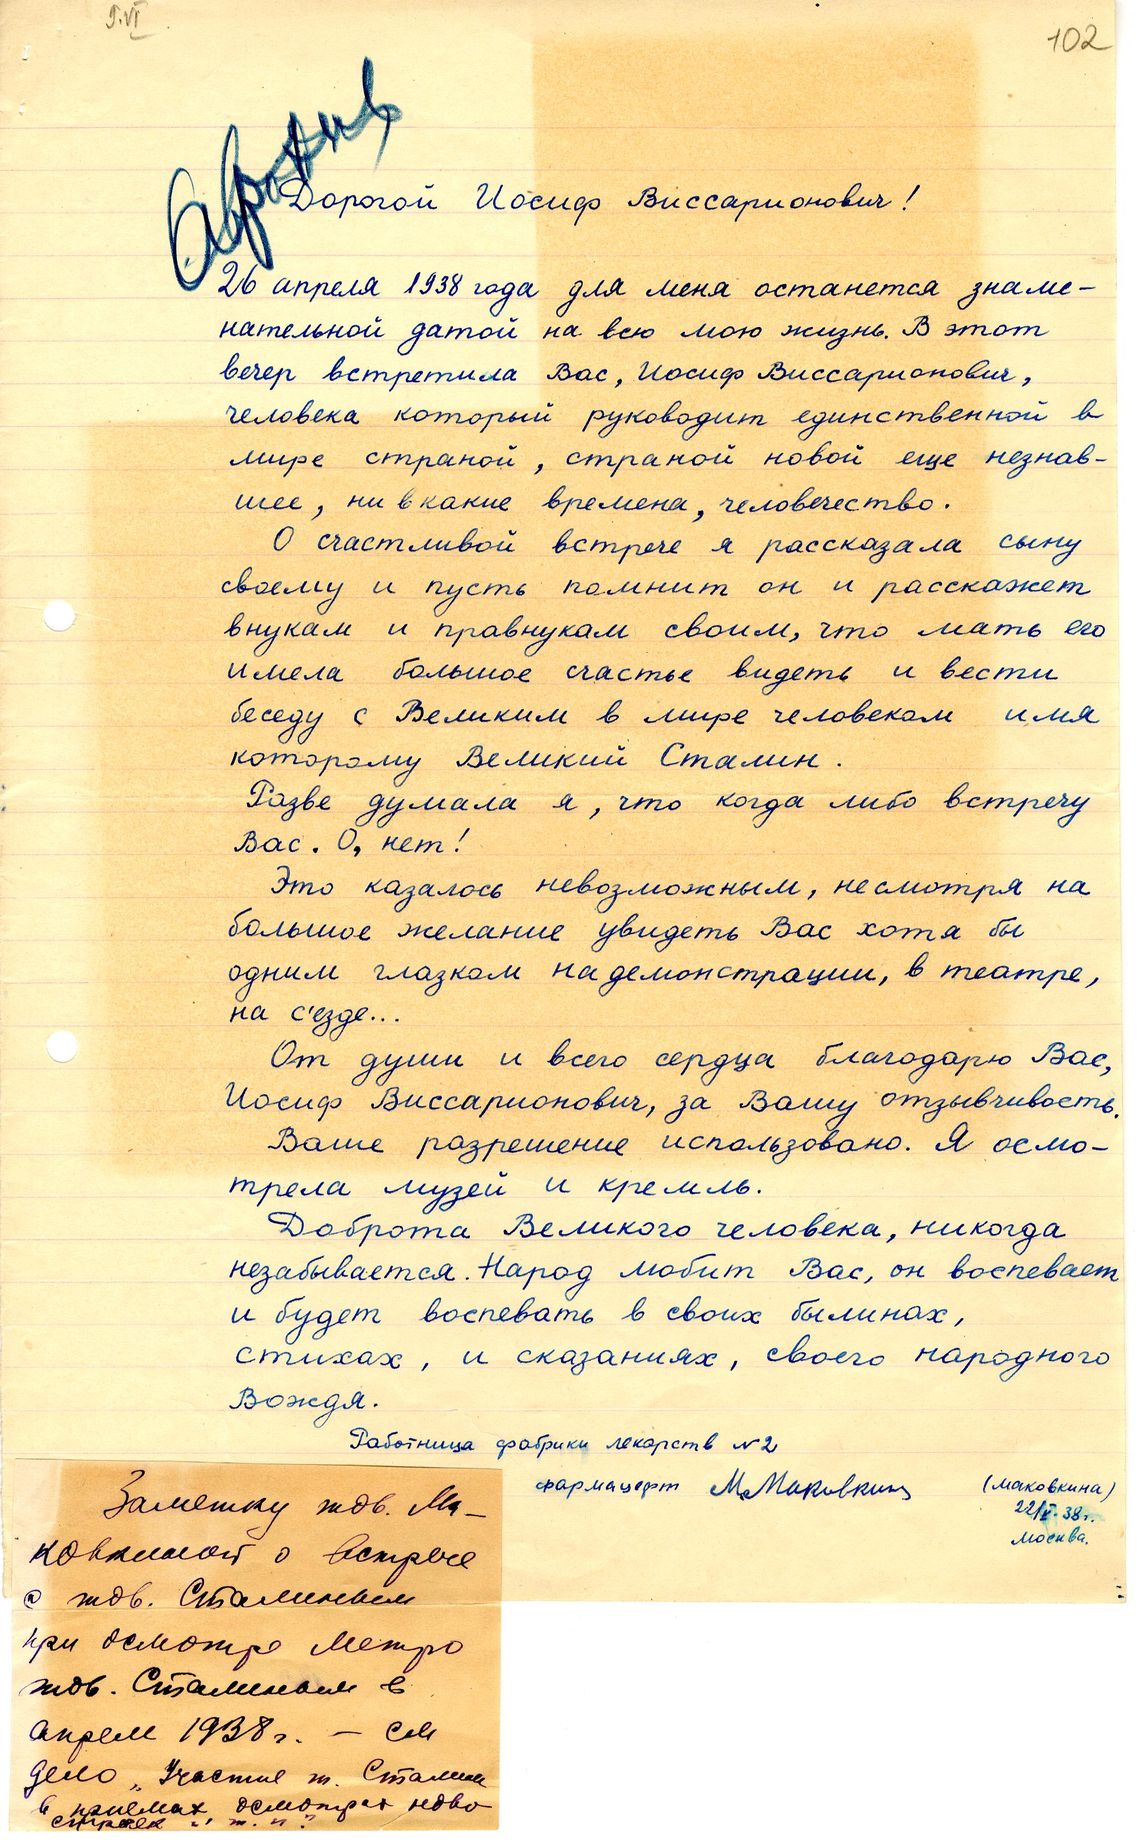 9.VI
102
Дорогой Иосиф Виссарионович!
26 апреля 1938 года для меня останется знаме-
нательной датой на всю мою жизнь. В этот
вечер встретила Вас, Иосиф Виссарионович,
человека который руководит единственной в
мире страной, страной новой еще незнав-
шее, ни в какие времена, человечество.
О счастливой встрече я рассказала сыну
своему и пусть помнит он и расскажет
внукам и правнукам своим, что мать его
имела большое счастье видеть и вести
беседу с Великим в мире человеком имя
которому Великий Сталин.
Разве думала я, что когда либо встречу
Вас. О, нет!
Это казалось невозможным, несмотря на
большое желание увидеть Вас хотя бы
одним глазком на демонстрации, в театре,
на с'езде...
От души и всего сердца благодарю Вас,
Иосиф Виссарионович, за Вашу отзывчивость.
Ваше разрешение использовано. Я осмо-
трела музей и кремль.
Доброта Великого человека, никогда
незабывается. Народ любит Вас, он воспевает
и будет воспевать в своих былинах,
стихах, и сказаниях, своего народного
Вождя.
Работница фабрики лекарств №2
фармацефт М. Маковкина (Маковкина)
22/V-38г.
Москва.
Заметку тов. Ма-
ковкиной о встрече
с тов. Сталиным
при осмотре Метро
тов. Сталиным в
апреле 1938 г. — см
дело „Участие т. Сталин
в приемах, осмотрах ново
строек и т. п."